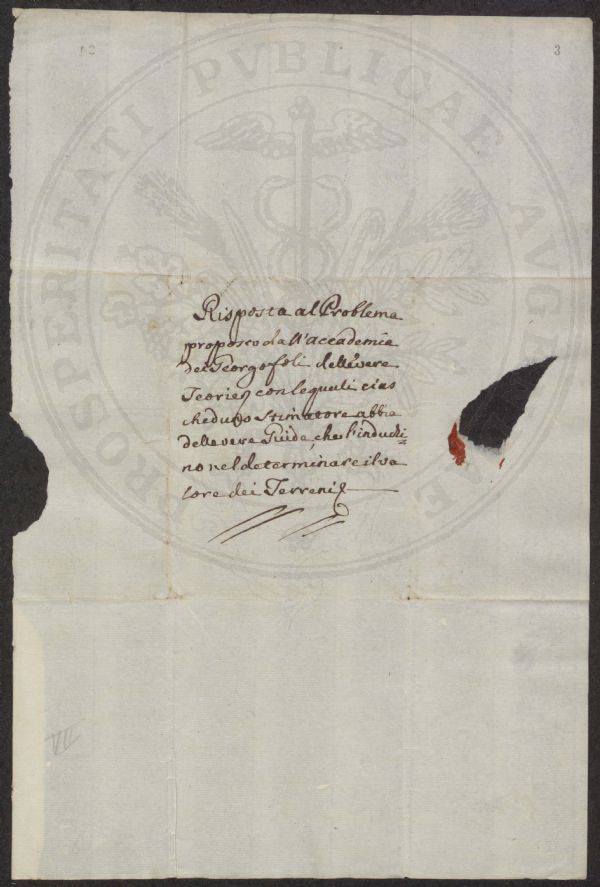 3
PROSPERITATI PVBLICAE AVGENDAE
Risposta al Problema
proposto dall'accademia
dei Georgofoli delle vere
Teorie, con le quali cias
cheduno Stimatore abbia
delle vere Guide, che l'induchi=
no nel determinare il va
lore dei Terreni
VII